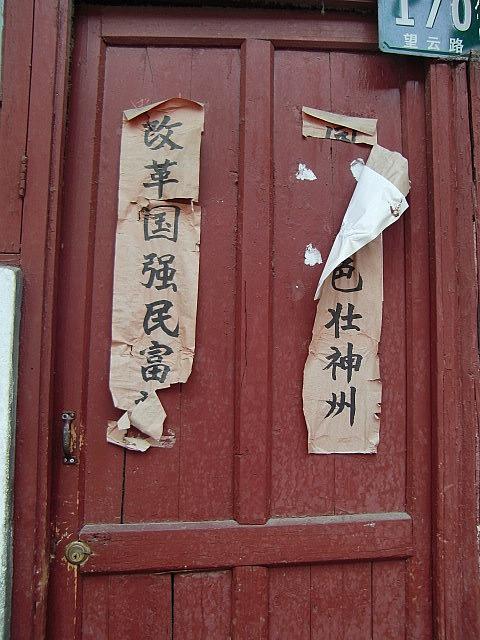 170
望云路
改革国强民富
邑壮神州